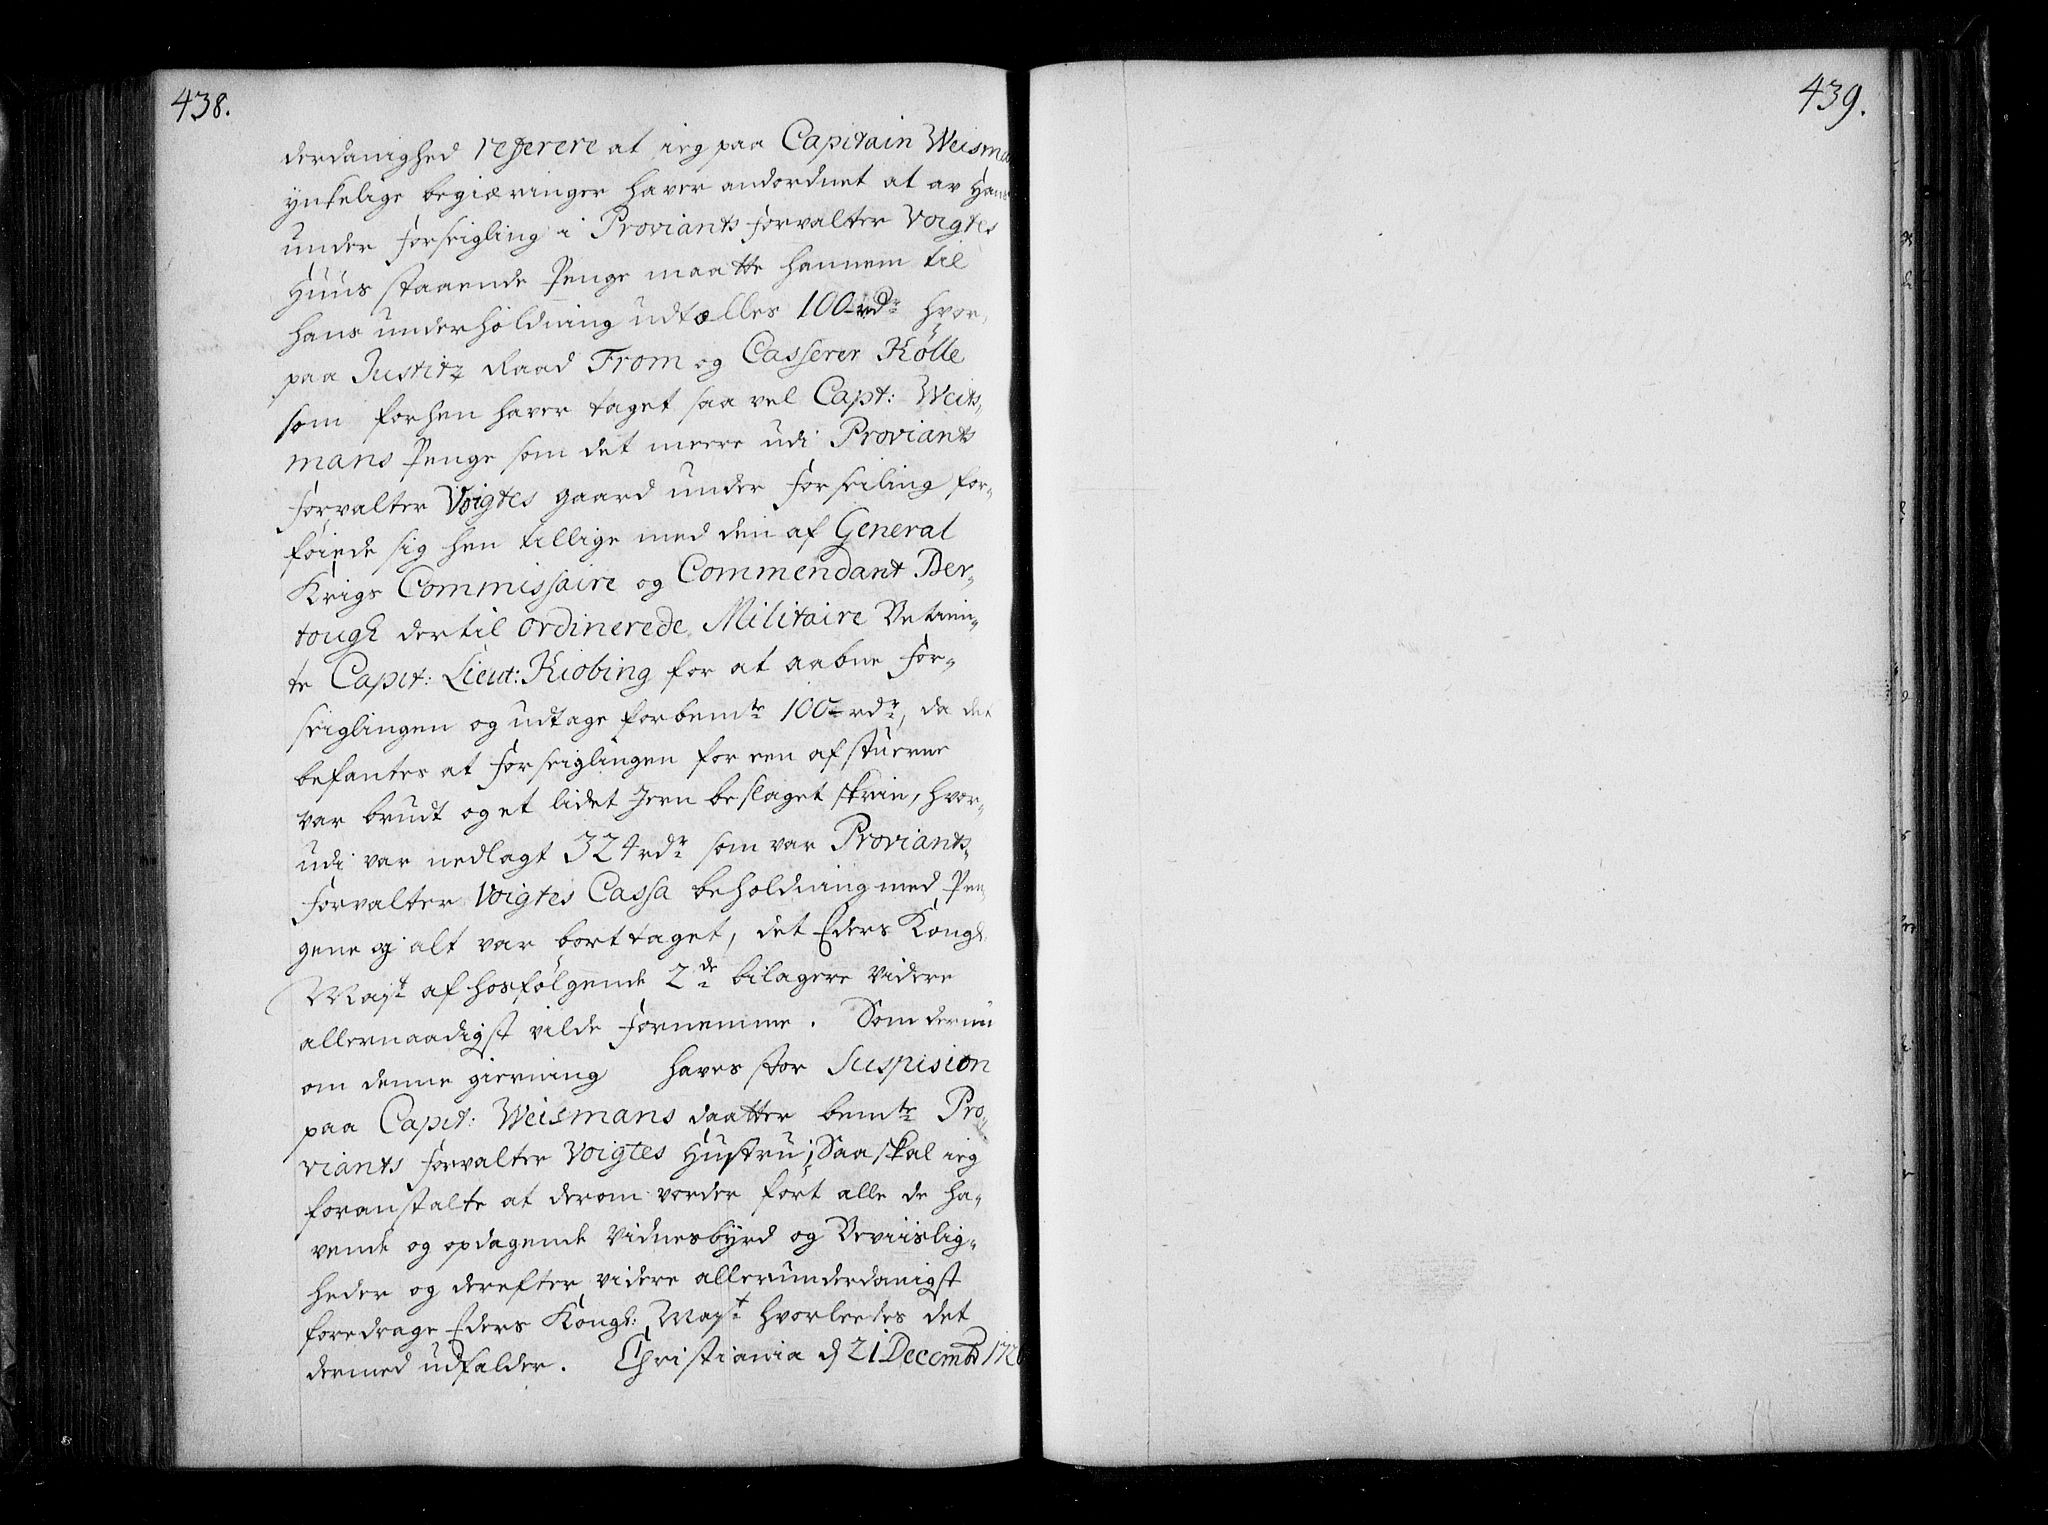 438.
derdanighed referere at ieg paa Capitain Weisman
ynkelige begiæringer haver andordnet at av Hans
under forseigling i Proviantsforvalter Voigtes
Huus staaende Penge maatte hannem til
hans underholdning udtælles 100 rdr hvor,
paa Justitz Raad From og Casserer Kölle
som forhen haver taget saa vel Capt: Weits,
mans Penge som det meere udi Proviants
forvalter Voigtes gaard under forseiling for-
föiede sig hen tillige med den af General
Krigs Commissaire og Commendant Ber-
tough dertil ordinerede Militaire Betien-
te Capit: Lieut: Kiobing for at aabne for-
seiglingen og udtage forbemte 100 rdr, da det
befantes at forseiglingen for een af stuerne
var brudt og et lidet Jern beslaget skrin, hvor-
udi var nedlagt 324 rdr som var Proviants-
forvalter Voigtes Cassa beholdning med Pen
gene og alt var borttaget, det Eders Kongl:
Mayt af hosfölgende 2de bilagere videre
allernaadigst vilde fornemme. Som der nu
om denne gierning haves stor Suspision
paa Capit: Weismans daatter bemte Pro-
viants forvalter Voigtes Hustrue; Saa skal ieg
foranstalte at derom vorder fört alle de ha-
vende og opdagende vidnesbyrd og Beviislig-
heder og derefter videre allerunderdanigst
foredrage Eders Kongl: Mayt hvorleedes det
dermed udfalder. Christiania d 21 Decembr
439.